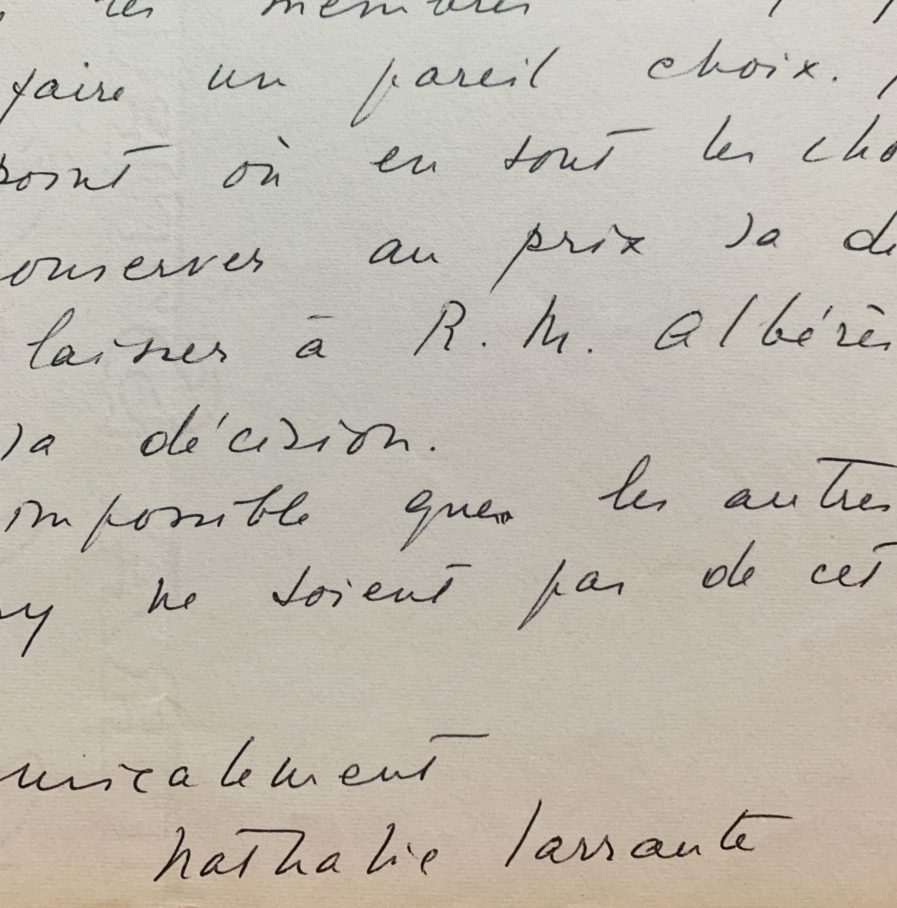 les membres
faire un pareil choix.
point où en sont les cho
onserver au prix sa d
laisser à R. M. Albérès
sa décision.
impossible que les autres
ny ne soient pas de cet
micalement
Nathalie Sarraute